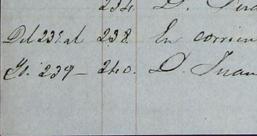 234. D.
Del 235 al 238. En corrien
Id. 239 - 240. D. Juan